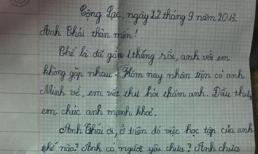 Cộng Lạc, ngày 22 tháng 9 năm 2013.
Anh Thái thân mến!
Thế là đã gần 1 tháng rồi, anh và em
không gặp nhau. Hôm nay nhân tiện có anh
Minh về, em viết thư hỏi thăm anh. Đầu thư,
em chúc anh mạnh khoẻ.
Anh Thái ơi, ở trên đó việc học tập của anh
thế nào? Anh có người yêu chưa? Anh chưa